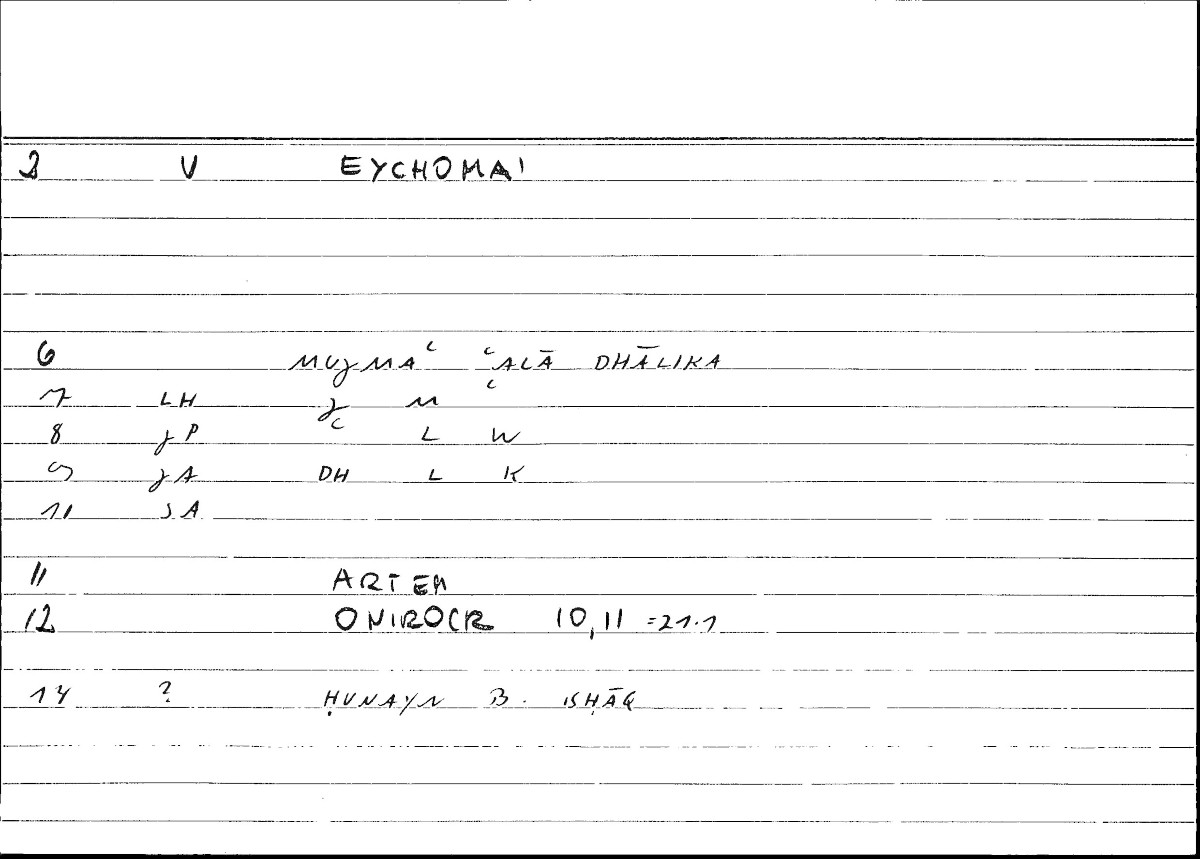 3 V EYCHOMAI
6 MUJMAʿ ʿALĀ DHĀLIKA
7 LH J M ʿ
8 JP ʿ L W
9 JA DH L K
10 JA
11 ARTEM
12 ONIROCR 10,11 =21.1
14 ? ḤUNAYN B. ISḤĀQ